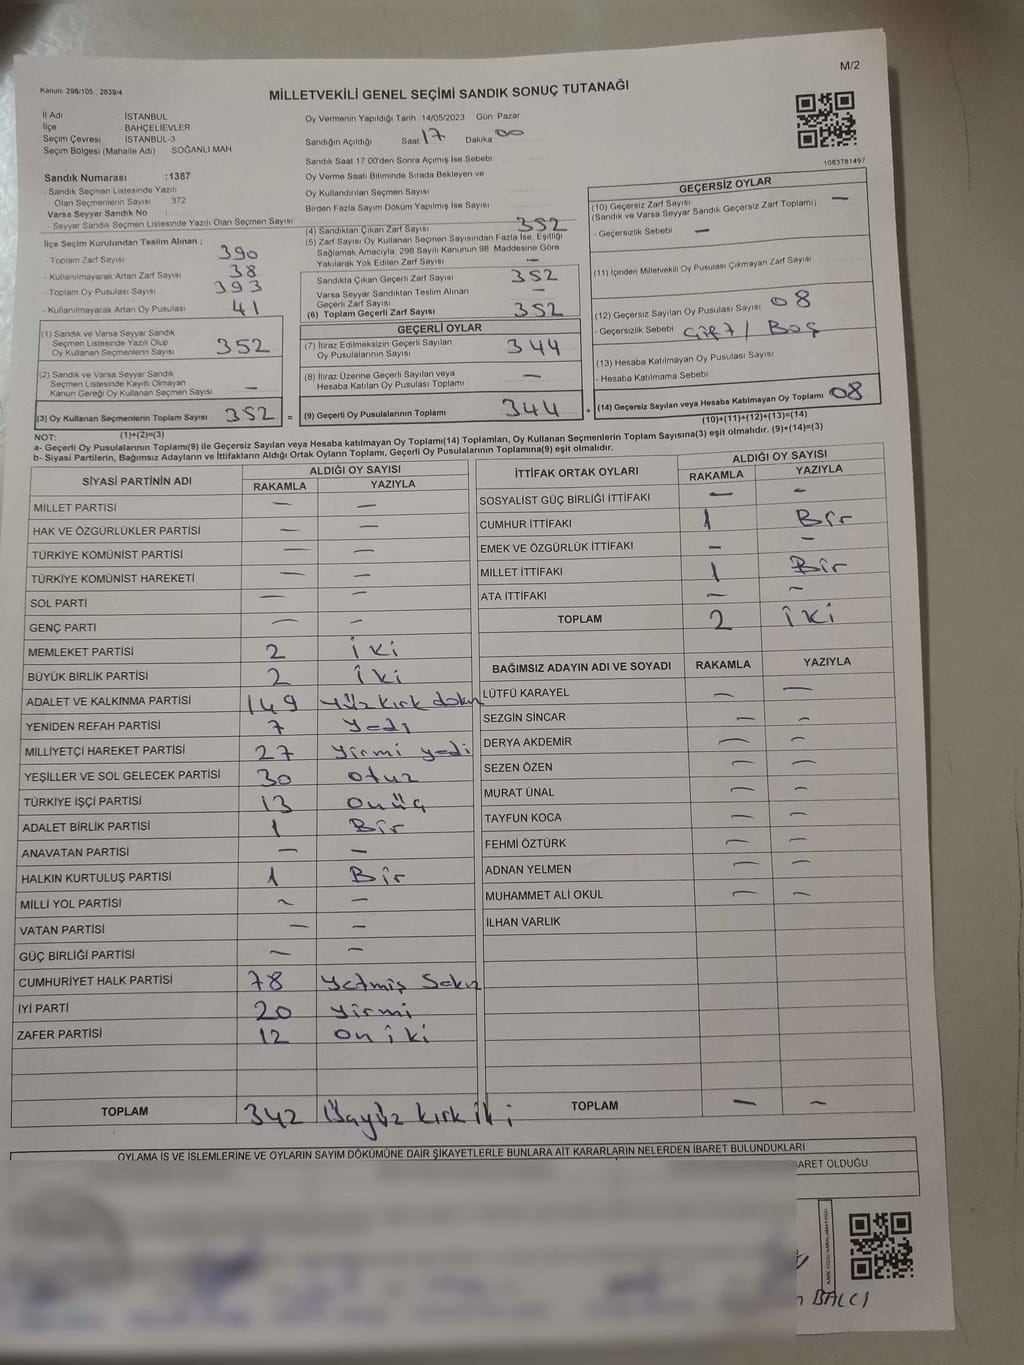 M/2
Kanun: 298/105 , 2839/4
MİLLETVEKİLİ GENEL SEÇİMİ SANDIK SONUÇ TUTANAĞI
İl Adı İSTANBUL
İlçe BAHÇELİEVLER
Seçim Çevresi İSTANBUL-3
Seçim Bölgesi (Mahalle Adı) SOĞANLI MAH.
Sandık Numarası :1387
- Sandık Seçmen Listesinde Yazılı
Olan Seçmenlerin Sayısı 372
Varsa Seyyar Sandık No :
- Seyyar Sandık Seçmen Listesinde Yazılı Olan Seçmen Sayısı:
İlçe Seçim Kurulundan Teslim Alınan ;
- Toplam Zarf Sayısı 390
- Kullanılmayarak Artan Zarf Sayısı 38
- Toplam Oy Pusulası Sayısı 393
- Kullanılmayarak Artan Oy Pusulası 41
(1) Sandık ve Varsa Seyyar Sandık
Seçmen Listesinde Yazılı Olup
Oy Kullanan Seçmenlerin Sayısı 352
(2) Sandık ve Varsa Seyyar Sandık
Seçmen Listesinde Kayıtlı Olmayan
Kanun Gereği Oy Kullanan Seçmen Sayısı —
(3) Oy Kullanan Seçmenlerin Toplam Sayısı 352 =
(1)+(2)=(3)
Oy Vermenin Yapıldığı Tarih :14/05/2023 Gün: Pazar
Sandığın Açıldığı Saat 17 Dakika 00
Sandık Saat 17.00'den Sonra Açımış İse Sebebi
Oy Verme Saati Bitiminde Sırada Bekleyen ve
Oy Kullandırılan Seçmen Sayısı
Birden Fazla Sayım Döküm Yapılmış İse Sayısı
(4) Sandıktan Çıkan Zarf Sayısı 352
(5) Zarf Sayısı Oy Kullanan Seçmen Sayısından Fazla İse, Eşitliği
Sağlamak Amacıyla, 298 Sayılı Kanunun 98. Maddesine Göre
Yakılarak Yok Edilen Zarf Sayısı —
Sandıkta Çıkan Geçerli Zarf Sayısı 352
Varsa Seyyar Sandıktan Teslim Alınan
Geçerli Zarf Sayısı —
(6) Toplam Geçerli Zarf Sayısı 352
GEÇERLİ OYLAR
(7) İtiraz Edilmeksizin Geçerli Sayılan
Oy Pusulalarının Sayısı 344
(8) İtiraz Üzerine Geçerli Sayılan veya
Hesaba Katılan Oy Pusulası Toplamı —
(9) Geçerli Oy Pusulalarının Toplamı 344 +
1083781497
GEÇERSİZ OYLAR
(10) Geçersiz Zarf Sayısı —
(Sandık ve Varsa Seyyar Sandık Geçersiz Zarf Toplamı)
- Geçersizlik Sebebi —
(11) İçinden Milletvekili Oy Pusulası Çıkmayan Zarf Sayısı
(12) Geçersiz Sayılan Oy Pusulası Sayısı 08
- Geçersizlik Sebebi Çift / Boş
(13) Hesaba Katılmayan Oy Pusulası Sayısı
- Hesaba Katılmama Sebebi
(14) Geçersiz Sayılan veya Hesaba Katılmayan Oy Toplamı 08
(10)+(11)+(12)+(13)=(14)
NOT:
a- Geçerli Oy Pusulalarının Toplamı(9) ile Geçersiz Sayılan veya Hesaba katılmayan Oy Toplamı(14) Toplamları, Oy Kullanan Seçmenlerin Toplam Sayısına(3) eşit olmalıdır. (9)+(14)=(3)
b- Siyasi Partilerin, Bağımsız Adayların ve İttifakların Aldığı Ortak Oyların Toplamı, Geçerli Oy Pusulalarının Toplamına(9) eşit olmalıdır.
SİYASİ PARTİNİN ADI ALDIĞI OY SAYISI
RAKAMLA YAZIYLA
MİLLET PARTİSİ — —
HAK VE ÖZGÜRLÜKLER PARTİSİ — —
TÜRKİYE KOMÜNİST PARTİSİ — —
TÜRKİYE KOMÜNİST HAREKETİ — —
SOL PARTİ — —
GENÇ PARTİ — —
MEMLEKET PARTİSİ 2 iki
BÜYÜK BİRLİK PARTİSİ 2 iki
ADALET VE KALKINMA PARTİSİ 149 yüz kırk dokuz
YENİDEN REFAH PARTİSİ 7 yedi
MİLLİYETÇİ HAREKET PARTİSİ 27 yirmi yedi
YEŞİLLER VE SOL GELECEK PARTİSİ 30 otuz
TÜRKİYE İŞÇİ PARTİSİ 13 onüç
ADALET BİRLİK PARTİSİ 1 Bir
ANAVATAN PARTİSİ — —
HALKIN KURTULUŞ PARTİSİ 1 Bir
MİLLİ YOL PARTİSİ — —
VATAN PARTİSİ — —
GÜÇ BİRLİĞİ PARTİSİ — —
CUMHURİYET HALK PARTİSİ 78 yetmiş Sekiz
İYİ PARTİ 20 yirmi
ZAFER PARTİSİ 12 on iki
TOPLAM 342 Üçyüz kırk iki
İTTİFAK ORTAK OYLARI ALDIĞI OY SAYISI
RAKAMLA YAZIYLA
SOSYALİST GÜÇ BİRLİĞİ İTTİFAKI — —
CUMHUR İTTİFAKI 1 Bir
EMEK VE ÖZGÜRLÜK İTTİFAKI — —
MİLLET İTTİFAKI 1 Bir
ATA İTTİFAKI — —
TOPLAM 2 iki
BAĞIMSIZ ADAYIN ADI VE SOYADI RAKAMLA YAZIYLA
LÜTFÜ KARAYEL — —
SEZGİN SİNCAR — —
DERYA AKDEMİR — —
SEZEN ÖZEN — —
MURAT ÜNAL — —
TAYFUN KOCA — —
FEHMİ ÖZTÜRK — —
ADNAN YELMEN — —
MUHAMMET ALİ OKUL — —
İLHAN VARLIK
TOPLAM — —
OYLAMA İŞ VE İŞLEMLERİNE VE OYLARIN SAYIM DÖKÜMÜNE DAİR ŞİKAYETLERLE BUNLARA AİT KARARLARIN NELERDEN İBARET BULUNDUKLARI
BARET OLDUĞU
BALCI